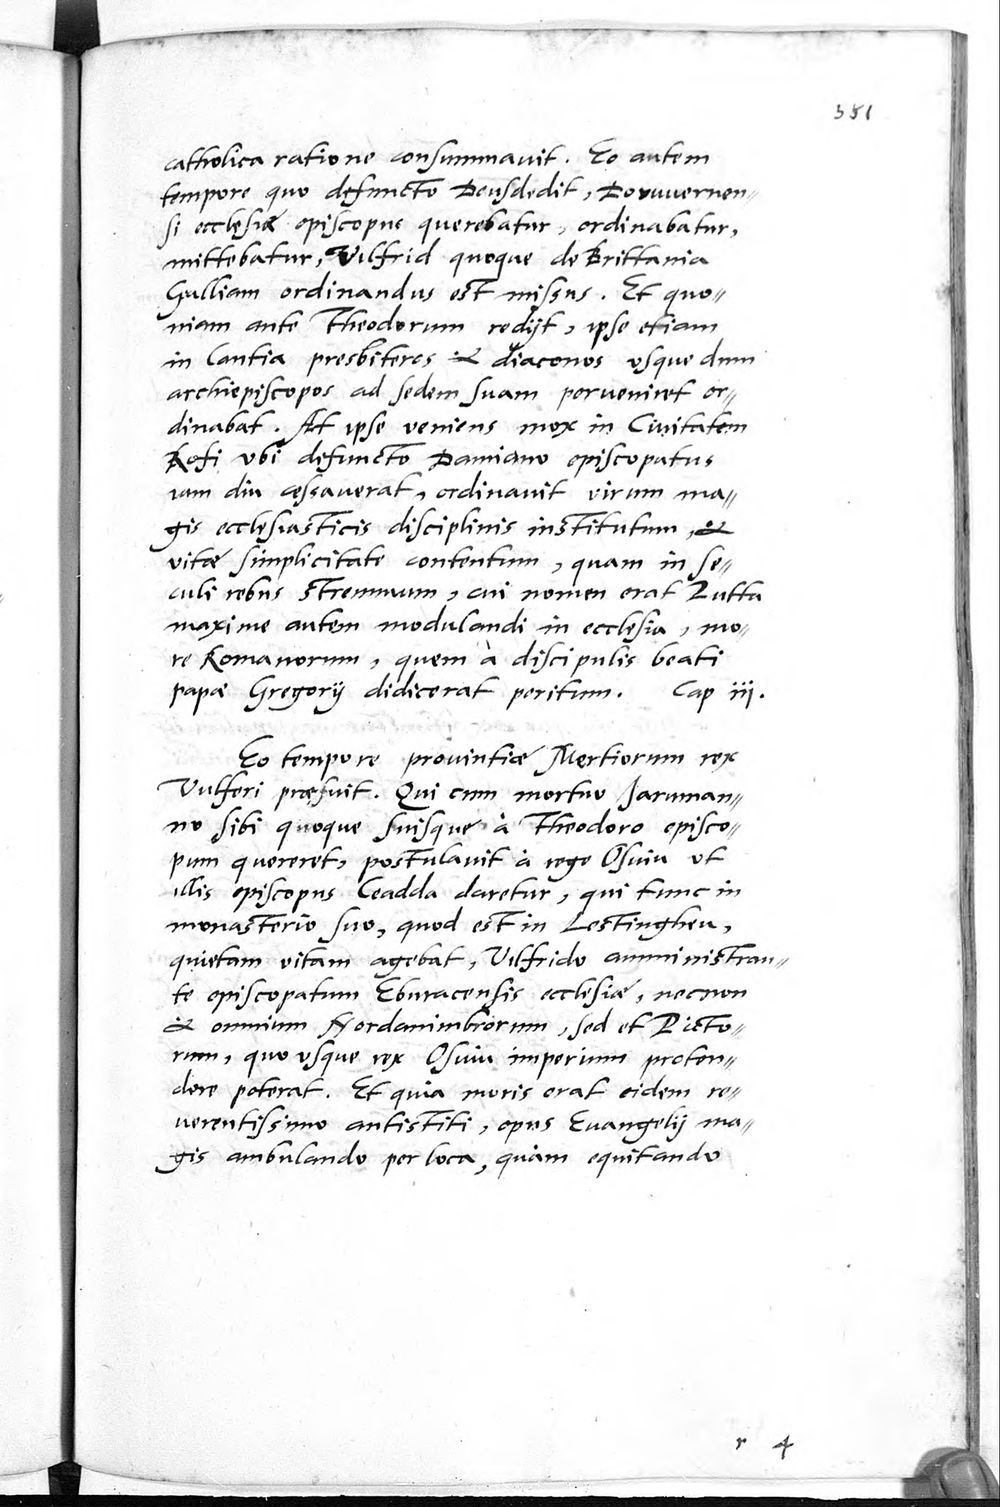 351
catholica ratione consummauit. Eo autem
tempore quo defuncto Deusdedit, Dorwuernen„
si ecclesiæ episcopus querebatur, ordinabatur,
mittebatur, Vilfrid quoque de Brittania
Galliam ordinandus est missus. Et quo„
niam ante Theodorum redijt, ipse etiam
in Cantia presbiteros & diaconos vsque dum
archiepiscopos ad sedem suam perueniret or„
dinabat. At ipse veniens mox in Ciuitatem
Rofi vbi defuncto Damiano episcopatus
iam diu cessauerat, ordinauit virum ma„
gis ecclesiasticis disciplinis institutum, &
vitæ simplicitate contentum, quam in se„
culi rebus strenuum, cui nomen erat Putta
maxime autem modulandi in ecclesia, mo„
re Romanorum, quem à discipulis beati
papæ Gregorij didicerat peritum. Cap iij.
Eo tempore prouintiæ Mertiorum rex
Vulferi præfuit. Qui cum mortuo Jaruman„
no sibi quoque suisque à Theodoro episco„
pum quereret, postulauit à rege Osuiu vt
illis episcopus Ceadda daretur, qui tunc in
monasterio suo, quod est in Lestingheu,
quietam vitam agebat, Vilfrido amministran„
te episcopatum Eburacensis ecclesiæ, necnon
& omnium Nordanimbrorum, sed et Picto„
rum, quo vsque rex Osuiu imperium proten„
dere poterat. Et quia moris erat eidem re„
uerentissimo antistiti, opus Euangelij ma„
gis ambulando per loca, quàm equitando
r 4